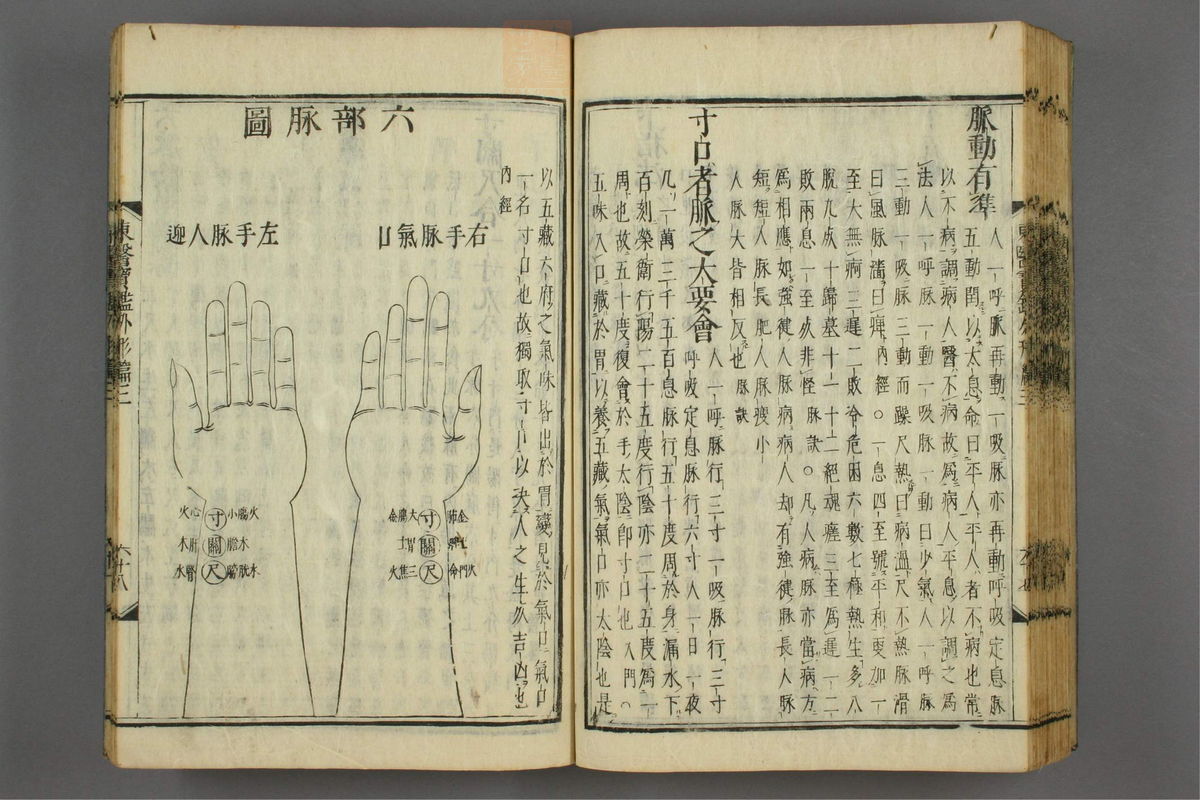 脈動有準
人一呼脈再動一吸脈亦再動呼吸定息脈
五動閏以太息命曰平人平人者不病也常
以不病調病人醫不病故爲病人平息以調之爲
法人一呼脈一動一吸脈一動曰少氣人一呼脉
三動一吸脈三動而躁尺熱曰病溫尺不熱脉滑
曰風脈濇曰痺內經○一息四至號平和更加一
至大無痾三遲二敗冷危困六數七極熱生多八
脫九死十歸墓十一十二絕魂瘥三至爲遲一二
敗兩息一至死非怪脉訣○凡人病脈亦當病方
爲相應如强健人脈病病人却有强健脈長人脈
短短人脈長肥人脈瘦小
人脈大皆相反也脉訣
寸口者脈之大要會
人一呼脈行三寸一吸脈行三寸
呼吸定息脈行六寸人一日一夜
凡一萬三千五百息脈行五十度周於身漏水下
百刻榮衛行陽二十五度行陰亦二十五度爲一
周也故五十度復會於手太陰卽寸口也入門○
五味入口藏於胃以養五藏氣氣口亦太陰也是
以五藏六府之氣味皆出於胃變見於氣口氣口
一名寸口也故獨取寸口以決人之生死吉凶也
內經
六部脉圖
右手脈氣口
左手脈人迎
大腸金 寸 肺金
胃土 關
三焦火 尺 命門火
心火 寸 小腸火
肝木 關 膽木
腎水 尺 膀胱水
東醫寶鑑外形篇二
六十八